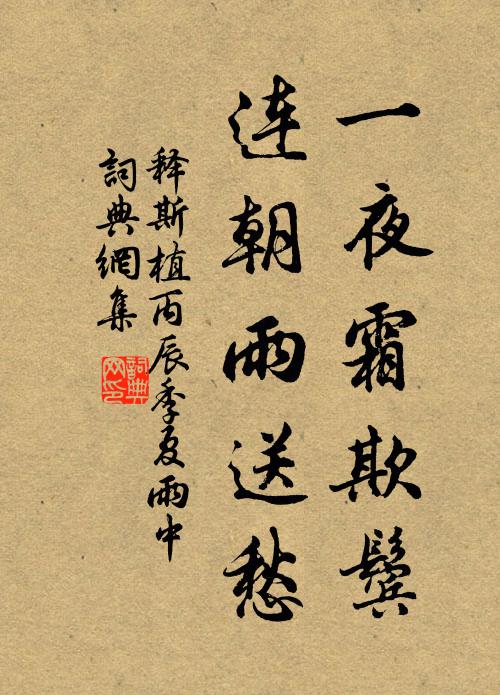 一夜霜欺鬓
连朝雨送愁
释斯植丙辰季夏雨中
詞典網集
詞典网印